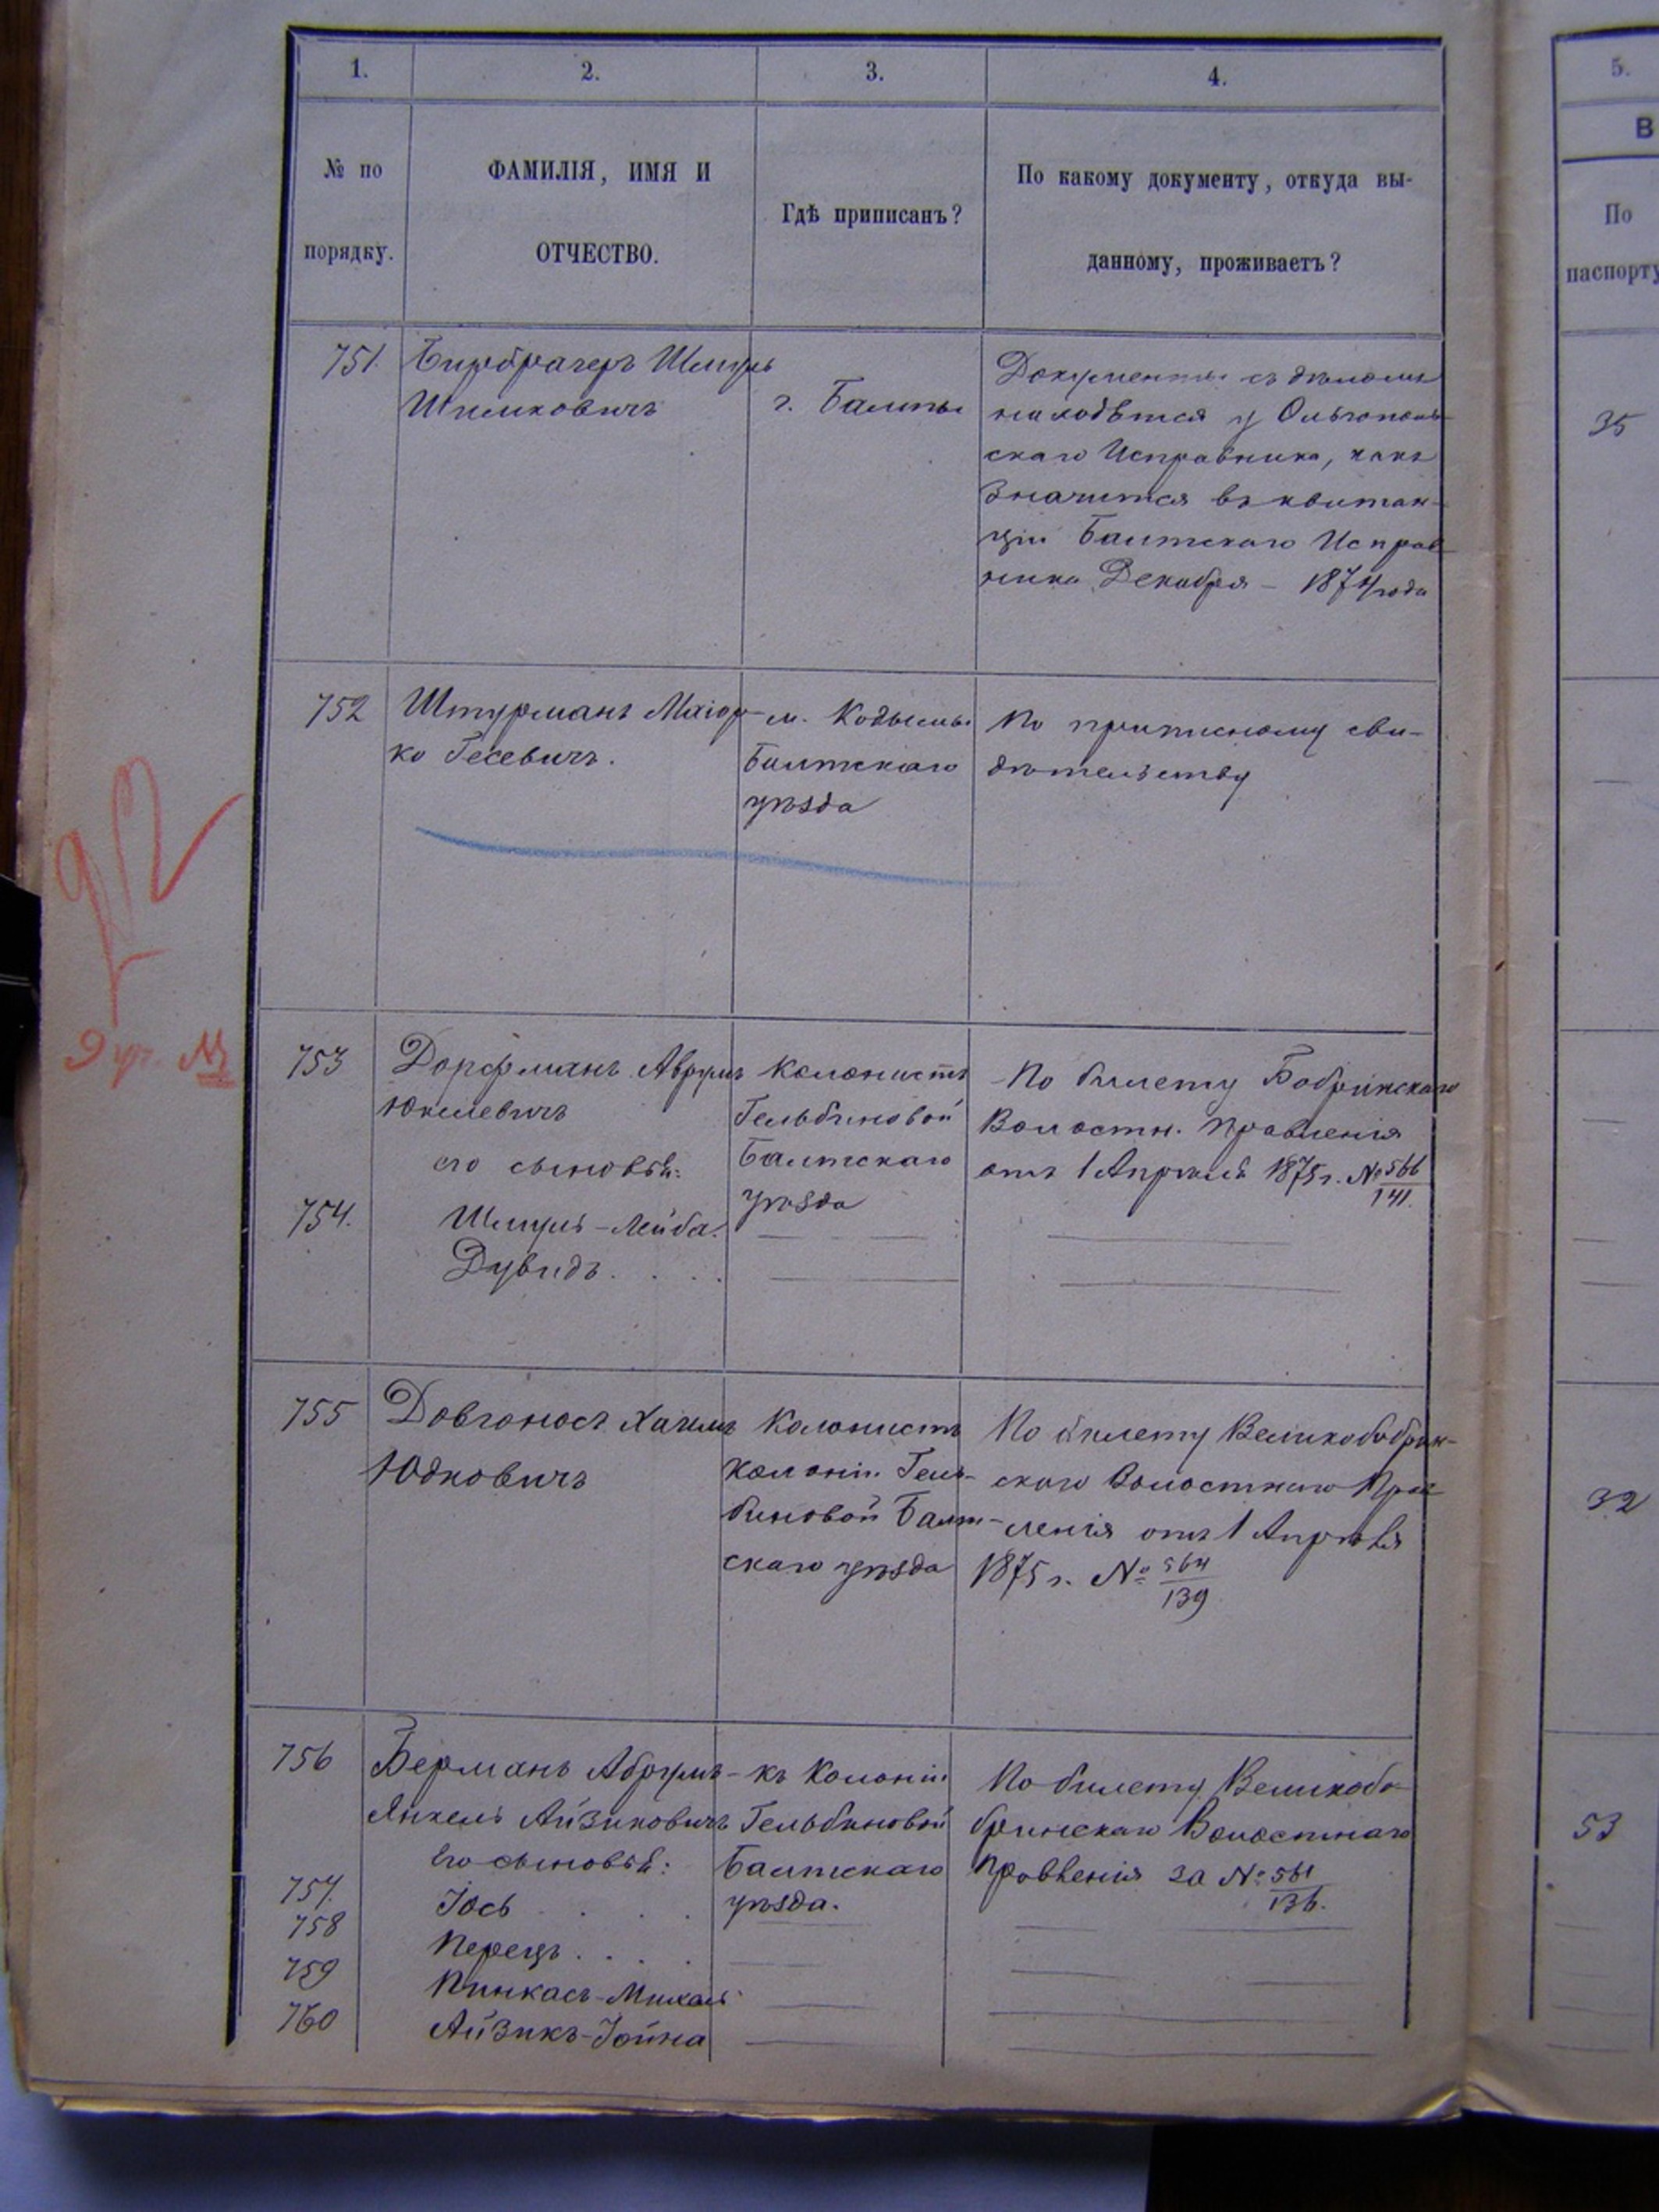 1.
2.
3.
4.
5.
№ по
порядку.
ФАМИЛІЯ, ИМЯ И
ОТЧЕСТВО.
Гдѣ приписанъ?
По какому документу, откуда вы-
данному, проживаетъ?
В
По
паспорту
751.
Бирбраеръ Шмуль
Шмилковичъ
г. Балты
Документы съ дѣломъ
находятся у Ольгополь-
скаго Исправника, какъ
значится въ квитан-
ціи Балтскаго Исправ-
ника Декабря – 1874 года
35
752
Штурманъ Маіор-
ко Гесевичъ.
м. Кодымы
Балтскаго
уѣзда
По приписному сви-
дѣтельству
92
9 ур. №
753
Дорфманъ Аврумъ
Юкелевичъ
его сыновья:
754.
Шмуль-Лейба.
Дувидъ. . . .
Колонистъ
Гельбиновой
Балтскаго
уѣзда
По билету Бобринскаго
Волостн. Правленія
отъ 1 Апрѣля 1875 г. № 566
141.
755
Довгоносъ Хаимъ
Юдковичъ
Колонистъ
колоніи Гель-
биновой Балт-
скаго уѣзда
По билету Великобобрин-
скаго Волостнаго Прав-
ленія отъ 1 Апрѣля
1875 г. № 564
139
32
756
Берманъ Абрумъ-
Янкель Айзиковичъ
Его сыновья:
757.
Іось . . . .
758
Перецъ. . . .
759
Пинкасъ-Михаль
760
Айзикъ-Іойна
къ Колоніи
Гельбиновой
Балтскаго
уѣзда.
По билету Великобо-
бринскаго Волостнаго
Правленія за № 561
136.
53